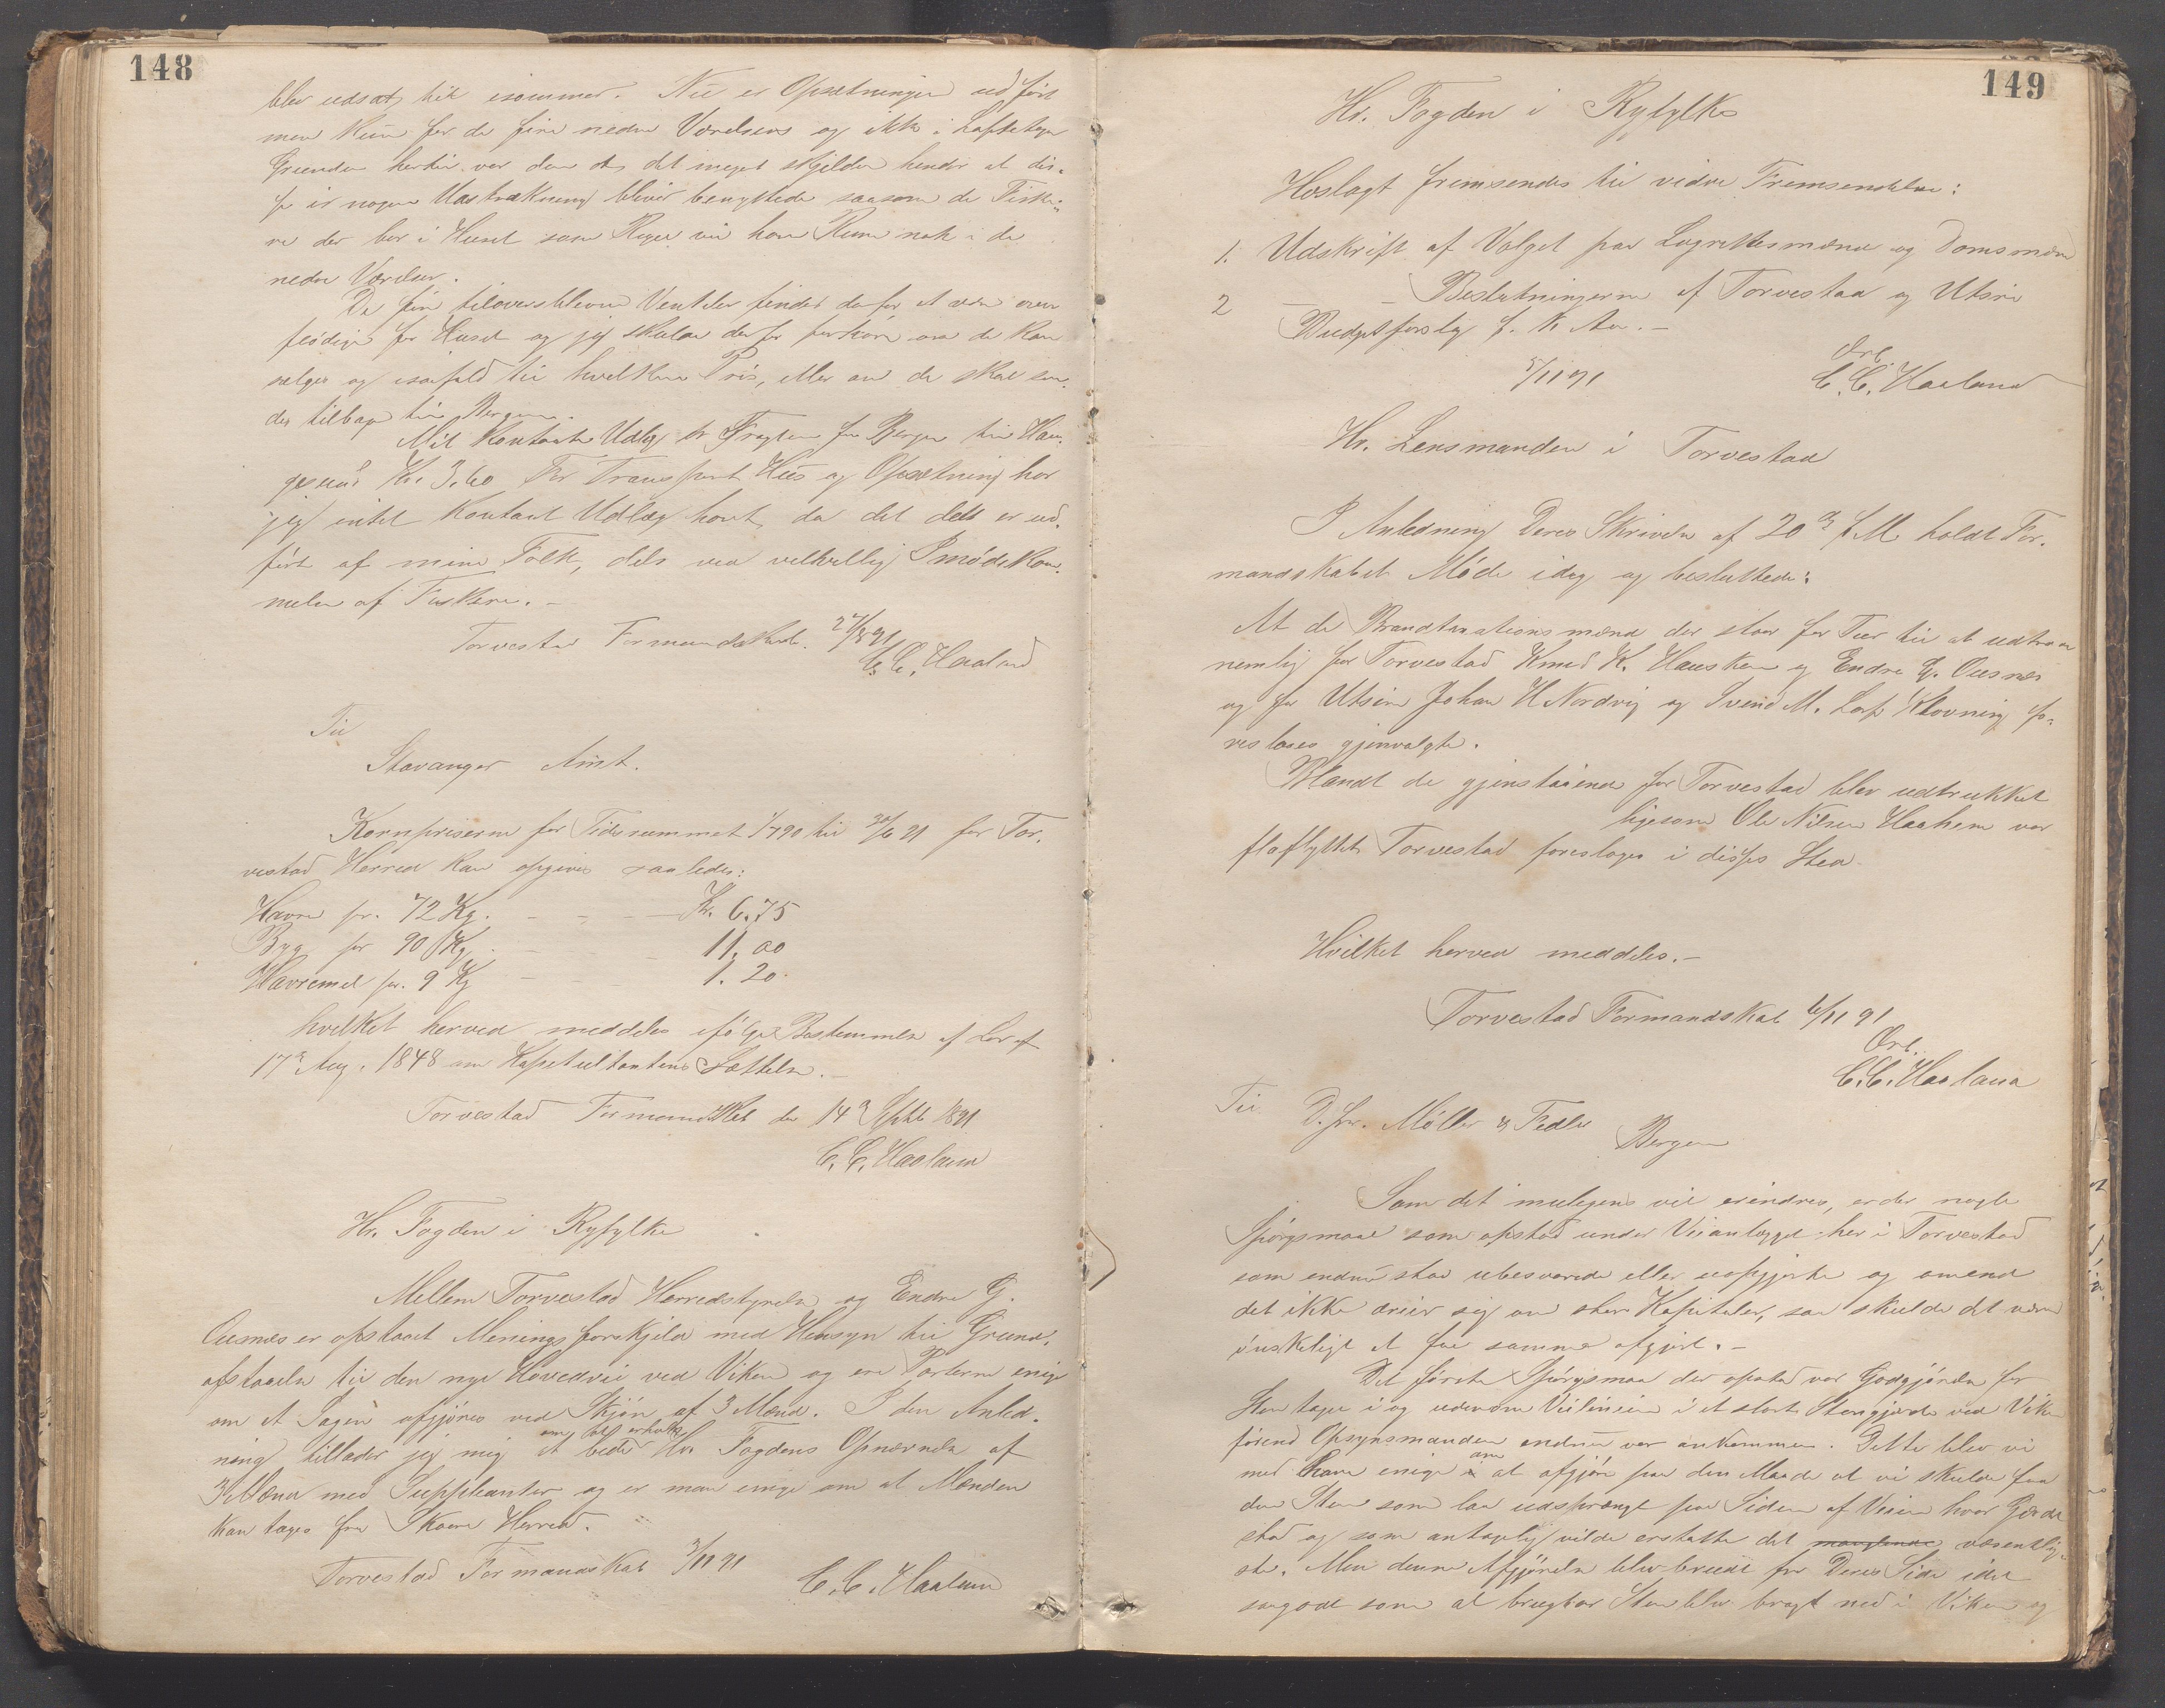 148
blev udsat til isommer. Nu er Opsætningen udført
men kun for de fire nedre Værelser og ikke i Loftetagen
Grunden hertil var den at det meget skjelden hender at dis-
se i nogen Udstrækning bliver benyttede saasom de Fiske-
re der bor i Huset som Regel vil have Rum nok i de
nedre Værelser.
De fire tiloversblevne Ventiler findes derfor at være over
flødige for Huset og jeg skulde derfor forhøre om de kan
sælges og isaafald til hvilken Pris, eller om de skal sen-
des tilbage til Bergen.
Mit Kontante Udlæg er Fragten fra Bergen til Hau-
gesund Kr. 3.60 For Transport Hus og Opsætning har
jeg intet Kontant Udlæg havt, da det dels er ud-
ført af mine Folk, dels ved velvillig Imødekom-
melse af Fiskere. -
Torvestad Formandskab. 24/8 91
C. C. Haaland
Til
Stavanger Amt.
Kornpriserne for Tidsrummet 1/7 90 til 30/6 91 for Tor-
vestad Herred kan opgives saaledes:
Havre pr. 72 Kg. - - - Kr. 6.75
Byg pr 90 Kg. - - - 11.00
Havremel pr. 9 Kg - - - 1.20
hvilket herved meddeles ifølge Bestemmelse af Lov af
17de Aug. 1848 om Kapiteltaxtens Sættelse. -
Torvestad Formandskab den 14de Septb 1891
C. C. Haaland
Hr. Fogden i Ryfylke
Mellem Torvestad Herredstyrelse og Endre G.
Ousnes er opstaaet Meningsforskjel med Hensyn til Grund-
afstaaelse til den nye Hovedvei ved Viken og ere Parterne enige
om at Sagen afgjøres ved Skjøn af 3 Mænd. I den Anled-
ning tillader jeg mig at bede om Hr. Fogdens Opnævnelse af
3 Mænd med Suppleanter og er man enige om at Mænden
kan tages fra Skaare Herred.
Torvestad Formandskab 3/11 91
C. C. Haaland
149
Hr. Fogden i Ryfylke
Hoslagt fremsendes til vidre Fremsendelse:
1. Udskrift af Valget paa Lagrettesmænd og Domsmænd
2 - - Beslutningerne af Torvestad og Utsire
Budgetforslag f. K. Aar. -
5/11 91
Ærb.
C. C. Haaland
Hr. Lensmanden i Torvestad
I Anledning Deres Skrivelse af 20de f. M. holdt For-
mandskabet Møde idag og besluttede:
At de Brandtaxationsmænd der staar for Tur til at udtræde
nemlig for Torvestad Knud K. Hausken og Endre G. Ousnes
og for Utsire Johan H Nordvig og Svend M. Klovning fo-
reslaaes gjenvalgte.
Blandt de gjenstaaende for Torvestad blev udtrukket
ligesom Ole Nilsen Haahem var
fraflyttet Torvestad foreslages i disses Sted
Hvilket herved meddeles. -
Torvestad Formandskab 6/11 91
Ærb.
C. C. Haaland
Til D. Hrr. Møller & Fedler Bergen
Som det muligens vil erindres, er der nogle
Spørgsmaal som opstod under Veianlægget her i Torvestad
som endnu staar ubesvarede eller uopgjorte og omend
det ikke dreier sig om store Kapitaler, saa skulde det være
ønskeligt at faa samme afgjort. -
Det første Spørgsmaal der opstod var Godtgjørelse for
Sten tagen i og udenom Veilinien i et stort Stengjerde ved Viken
førend Opsynsmanden endnu var ankommen. Dette blev vi
med ham enige om at afgjøre paa den Maade at vi skulde faa
den Sten som laa udsprængt paa Siden af Veien hvor Gjerdet
stod og som antagelig vilde erstatte det manglende væsentlig-
ste. Men denne Afgjørelse blev brudt fra Deres Side idet
saagodt som al brugbar Sten blev bragt ned i Viken og